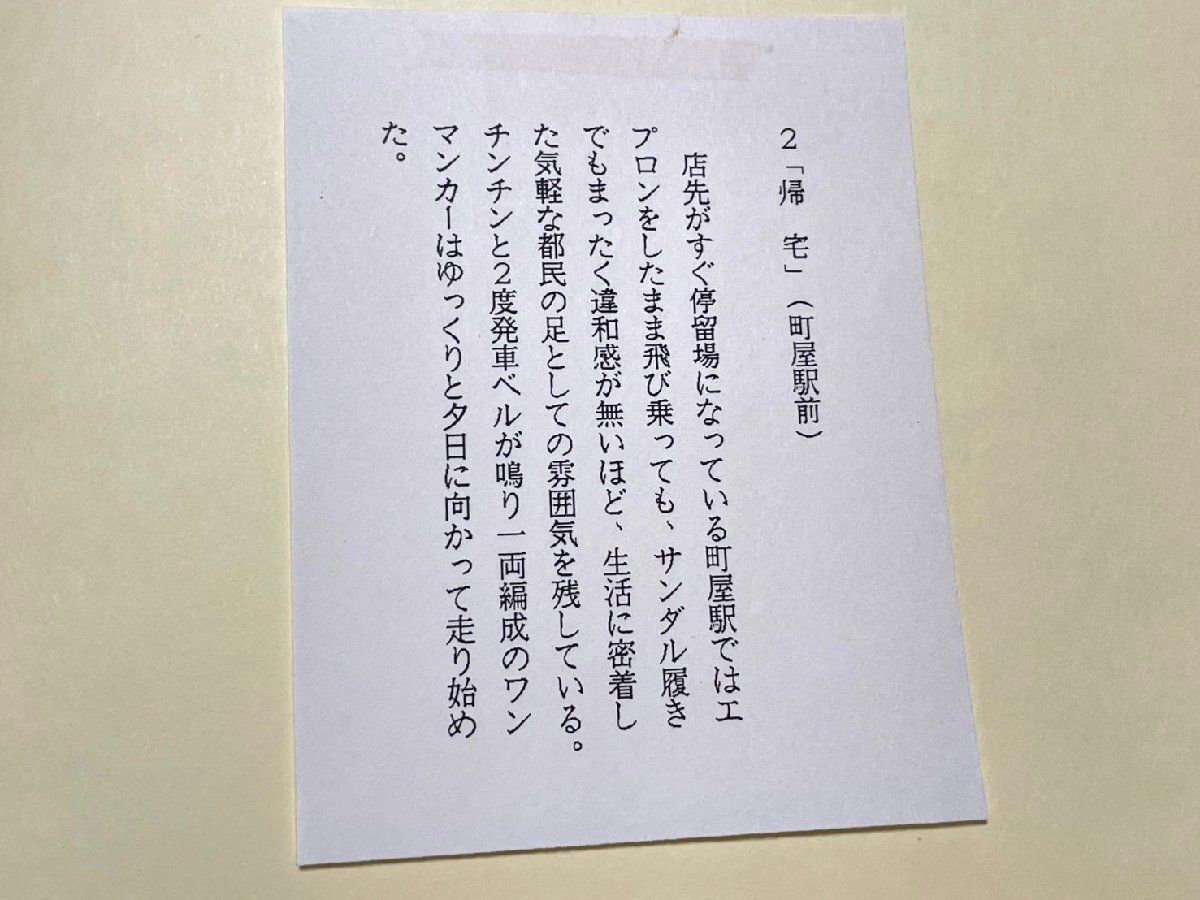 2「帰　宅」(町屋駅前)
　店先がすぐ停留場になっている町屋駅ではエ
プロンをしたまま飛び乗っても、サンダル履き
でもまったく違和感が無いほど、生活に密着し
た気軽な都民の足としての雰囲気を残している。
チンチンと2度発車ベルが鳴り一両編成のワン
マンカーはゆっくりと夕日に向かって走り始め
た。